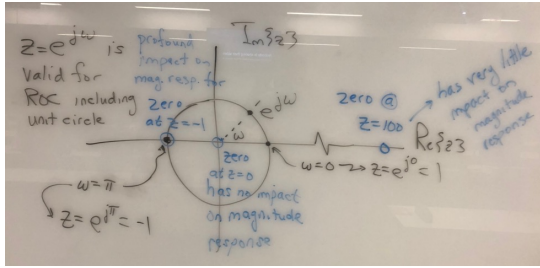 z = e^{jω} is
valid for
ROC including
unit circle
profound
impact on
mag. resp. for
zero
at z=-1
Im{z}
e^{jω}
ω
zero
at z=0
has no impact
on magnitude
response
zero @
z=100
has very little
impact on
magnitude
response
Re{z}
ω=0 → z=e^{j0}=1
ω=π
z=e^{jπ}=-1